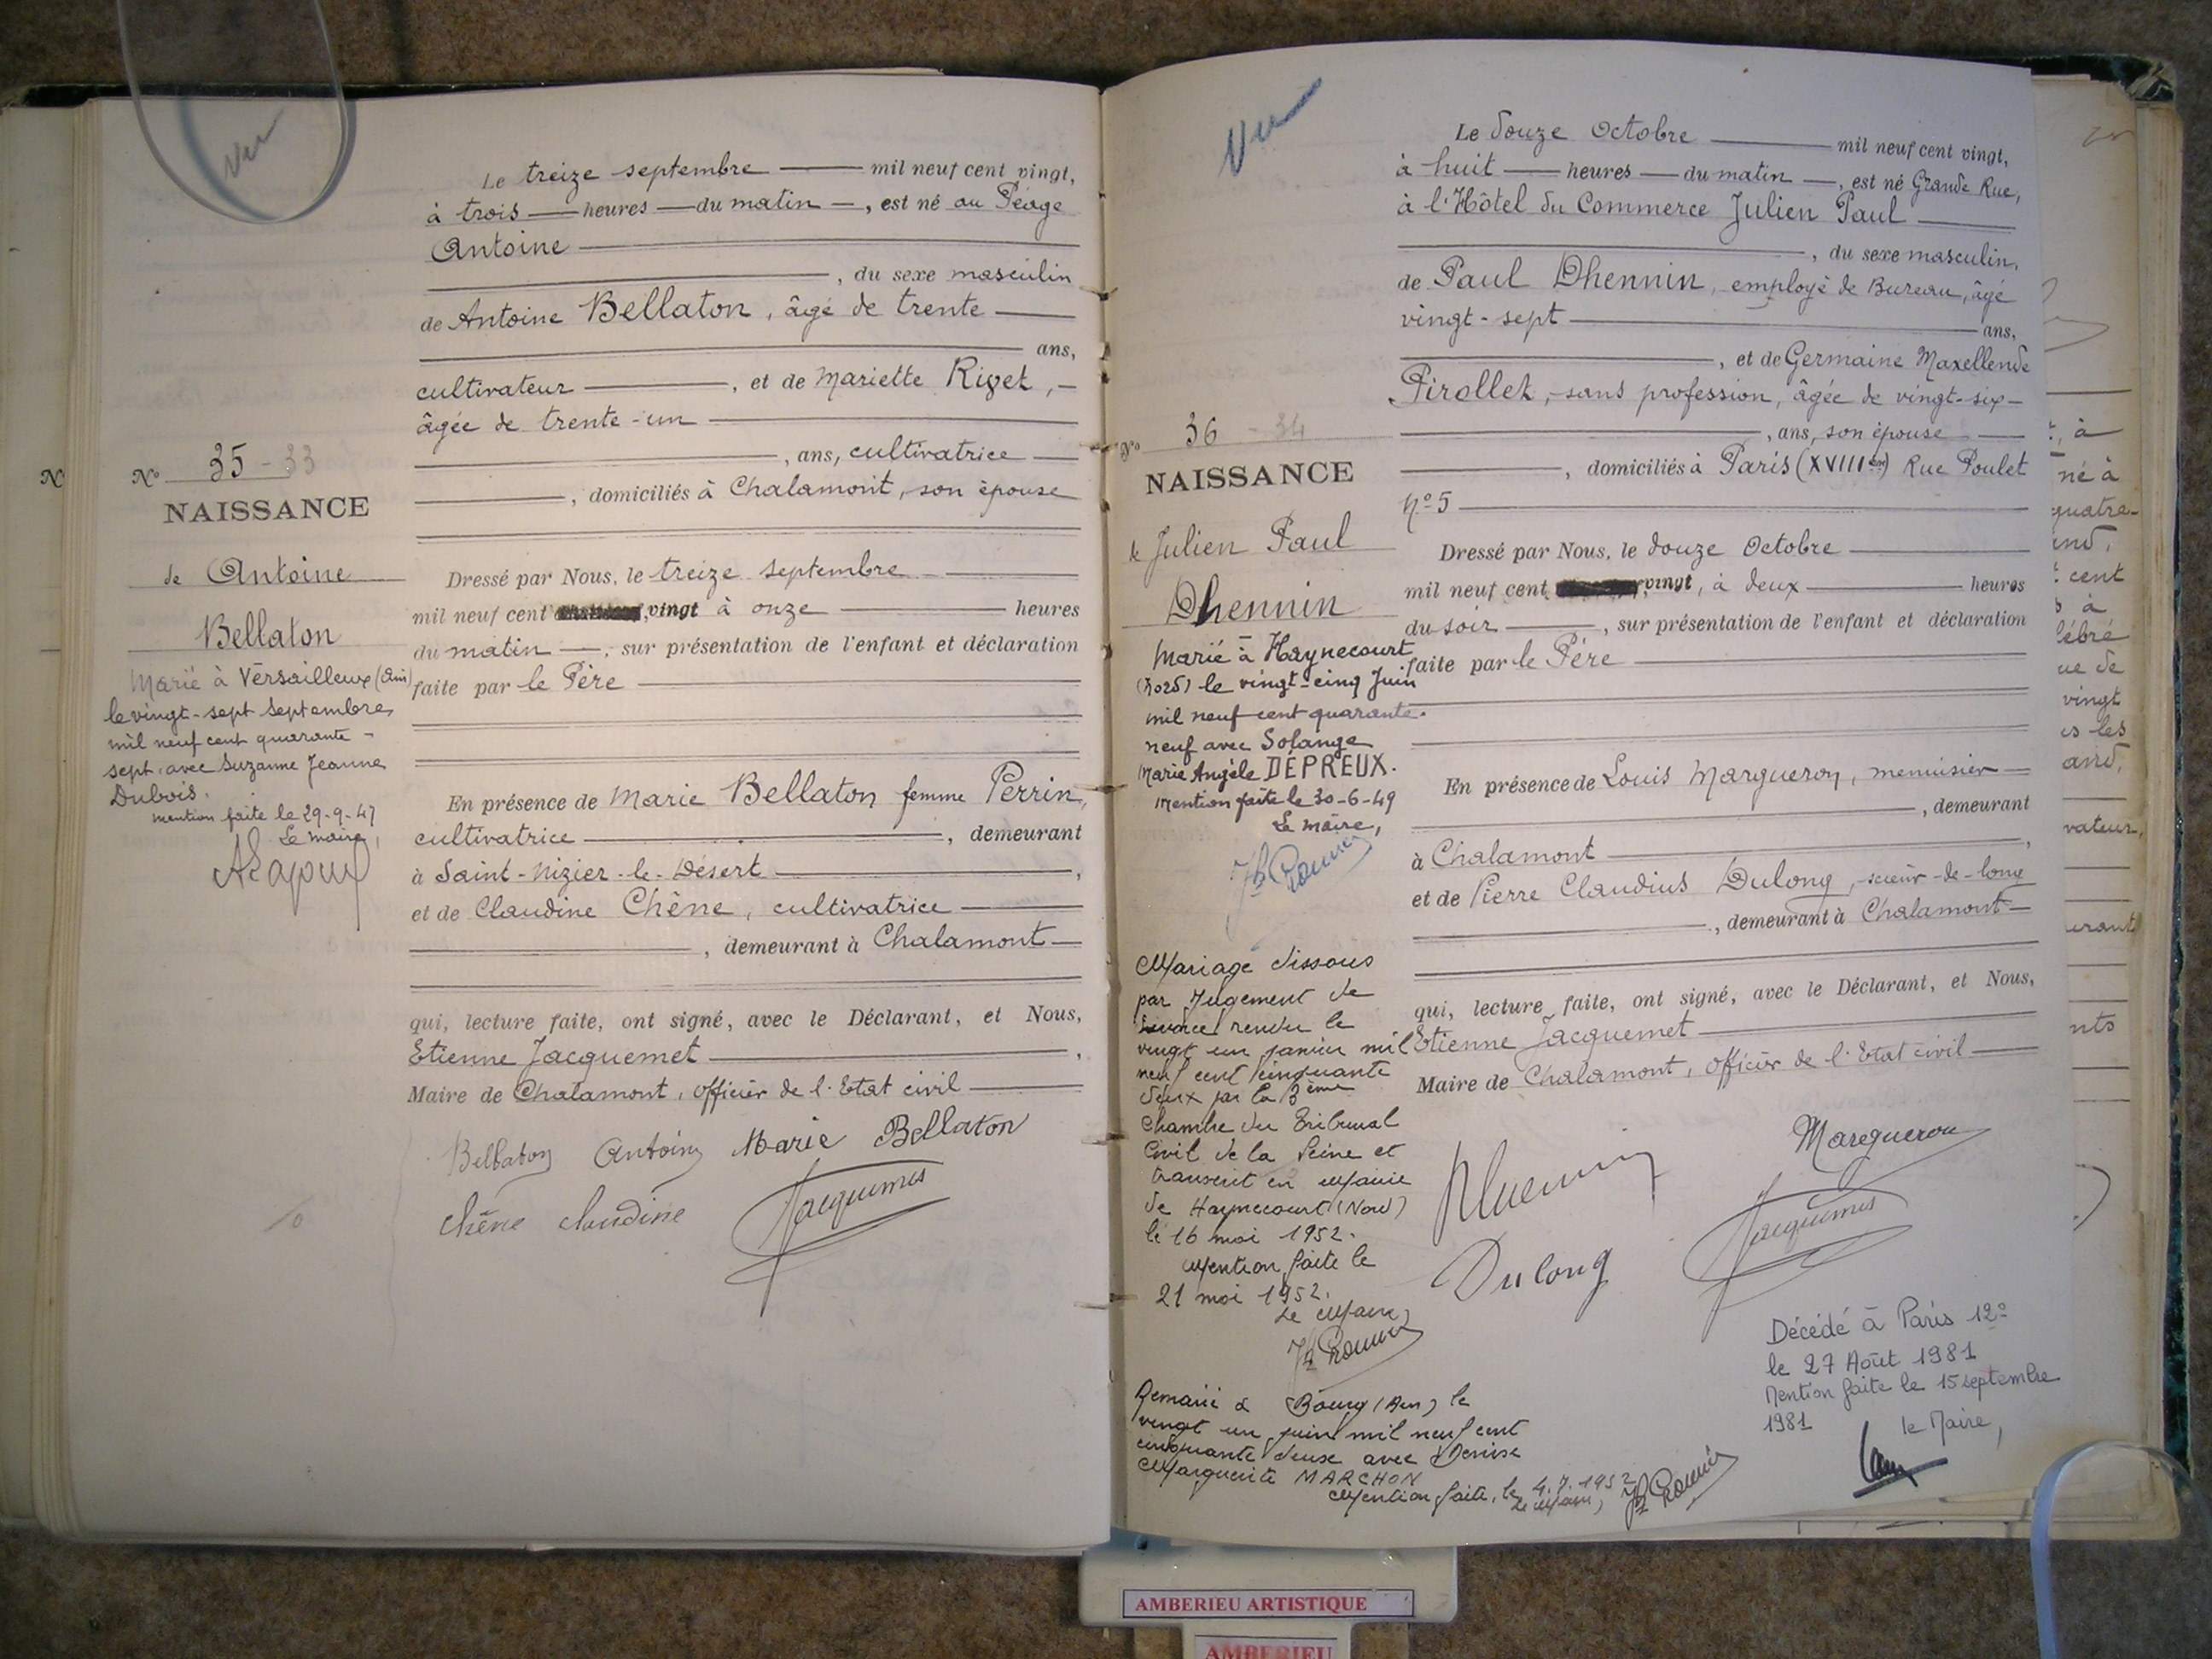 Vu
Le treize septembre mil neuf cent vingt,
à trois heures du matin, est né au Péage
Antoine
, du sexe masculin
de Antoine Bellaton, âgé de trente
ans,
cultivateur, et de Mariette Rivet,
âgée de trente-un
, ans, cultivatrice
, domiciliés à Chalamont, son épouse
Dressé par Nous, le treize septembre
mil neuf cent vingt à onze heures
du matin, sur présentation de l'enfant et déclaration
faite par le Père
En présence de Marie Bellaton femme Perrin,
cultivatrice, demeurant
à Saint-Nizier-le-Désert,
et de Claudine Chêne, cultivatrice
, demeurant à Chalamont
qui, lecture faite, ont signé, avec le Déclarant, et Nous,
Etienne Jacquemet,
Maire de Chalamont, officier de l'Etat civil
Bellaton Antoine Marie Bellaton
Chêne Claudine Jacquemet
N° 35 - 33
NAISSANCE
de Antoine
Bellaton
Marié à Versailleux (Ain)
le vingt-sept Septembre
mil neuf cent quarante-
sept avec Suzanne Jeanne
Dubois.
mention faite le 29-9-47
Le maire,
N
Vu
Le douze Octobre mil neuf cent vingt,
à huit heures du matin, est né Grande Rue,
à l'Hôtel du Commerce Julien Paul
, du sexe masculin,
de Paul Dhennin, employé de Bureau, âgé
vingt-sept ans,
, et de Germaine Maxellende
Pirollet, sans profession, âgée de vingt-six
, ans, son épouse
, domiciliés à Paris (XVIII) Rue Poulet
N° 5
Dressé par Nous, le douze Octobre
mil neuf cent vingt, à deux heures
du soir, sur présentation de l'enfant et déclaration
faite par le Père
En présence de Louis Margueron, menuisier
, demeurant
à Chalamont,
et de Pierre Claudius Dulong, scieur-de-long
, demeurant à Chalamont
qui, lecture faite, ont signé, avec le Déclarant, et Nous,
Etienne Jacquemet
Maire de Chalamont, officier de l'Etat civil
Margueron
Dhennin
Jacquemet
Dulong
Décédé à Paris 12°
le 27 Août 1981
Mention faite le 15 septembre
1981 le Maire,
N° 36 - 34
NAISSANCE
de Julien Paul
Dhennin
Marié à Haynecourt
(Nord) le vingt-cinq Juin
mil neuf cent quarante-
neuf avec Solange
Marie Angèle DÉPREUX.
Mention faite le 30-6-49
Le maire,
Mariage dissous
par Jugement de
divorce rendu le
vingt un janvier mil
neuf cent cinquante
deux par la 3ème
Chambre du Tribunal
Civil de la Seine et
transcrit en Mairie
de Haynecourt (Nord)
le 16 mai 1952.
Mention faite le
21 mai 1952.
Le Maire,
Remarié à Bourg (Ain) le
vingt un juin mil neuf cent
cinquante deux avec Denise
Marguerite MARCHON
Mention faite, le 4.7.1952
Le Maire,
, à
né à
quatre-
cent
à
lébré
ue de
vingt
es les
vateur,
urant
nts
AMBERIEU ARTISTIQUE
AMBERIEU